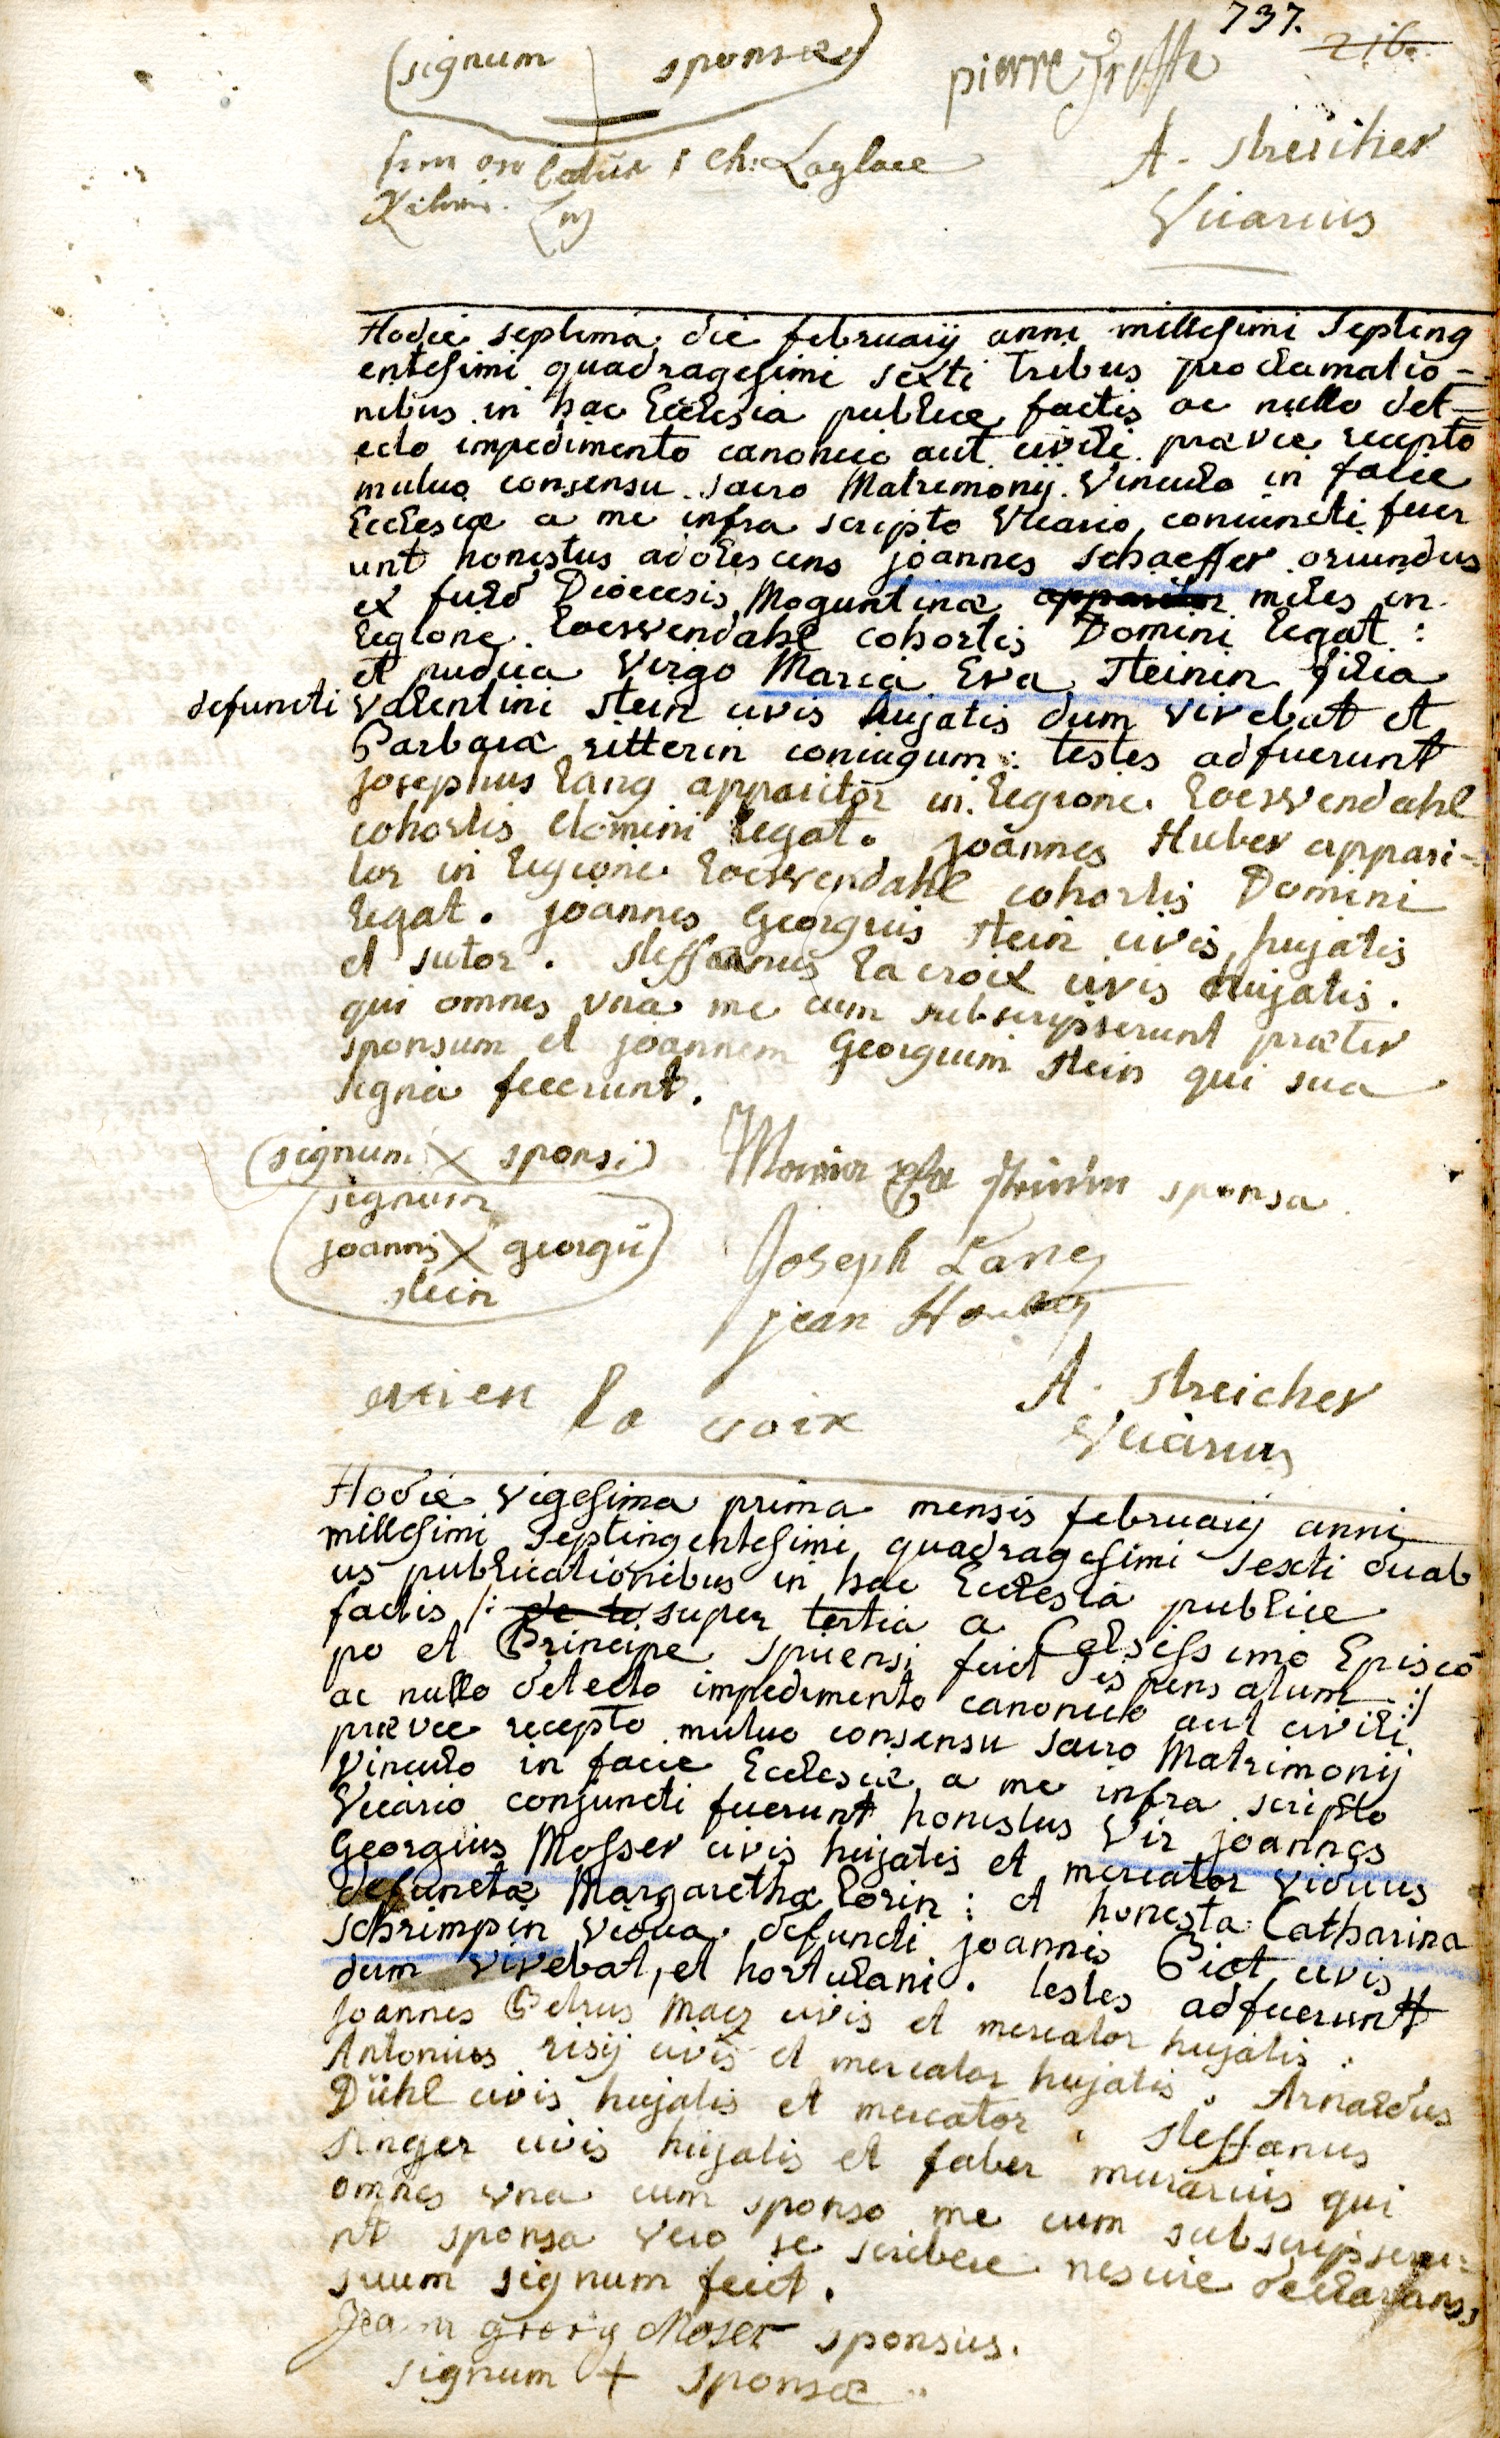 737.
216.
(signum sponsæ)
pierre
ch: Laglace
A. Streicher
Vicarius
Hodie septima die februarij anni millesimi Septing
entesimi quadragesimi sexti tribus proclamatio=
nibus in hac Ecclesia publice factis ac nullo det=
ecto impedimento canonico aut civili prævie recepto
mutuo consensu sacro Matrimonij Vinculo in facie
Ecclesiæ a me infra scripto Vicario coniuncti fuer
unt honestus adolescens joannes schaeffer oriundus
ex fuld Diœcesis Moguntinæ apparitor miles in
legione Loewendahl cohortis Domini legat:
et pudica Virgo Maria Eva Steinin filia
defuncti Valentini Stein civis hujatis dum vivebat et
Barbaræ ritterin coniugum: testes adfuerunt
josephus Lang apparitor in legione Loewendahl
cohortis domini legat. joannes Huber appari=
tor in legione Loewendahl cohortis Domini
legat. joannes Georgius Stein civis hujatis
et sutor. Steffanus la croix civis hujatis.
qui omnes una me cum subscripserunt præter
sponsum et joannem Georgium Stein qui sua
signa fecerunt.
(signum X sponsi)
Maria Eva Steinin sponsa
signum
joannis X georgii
stein
Joseph Lang
jean
etien la croix
A. Streicher
Vicarius
Hodie vigesima prima mensis februarij anni
millesimi Septingentesimi quadragesimi Sexti duab
us publicationibus in hac Ecclesia publice
factis /: de te super tertia a Celsissimo Episco
po et Principe Spirensi fuit dispensatum :/
ac nullo detecto impedimento canonico aut civili
prævie recepto mutuo consensu sacro Matrimonij
Vinculo in facie Ecclesiæ a me infra scripto
Vicario conjuncti fuerunt honestus Vir joannes
Georgius Mosser civis hujatis et mercator viduus
defunctæ Margarethæ Lorin: et honesta Catharina
schrimpin vidua defuncti joannis Piot civis
dum vivebat, et hortulani. testes adfuerunt
joannes Petrus May civis et mercator hujatis.
Antonius risij civis et mercator hujatis. Arnoldus
Dühl civis hujatis et mercator. Steffanus
singer civis hujatis et faber murarius qui
omnes una cum sponso me cum subscripseru=
nt sponsa vero se scribere nescire declarans,
suum signum fecit.
Jean georg Moser sponsus.
signum + sponsæ..